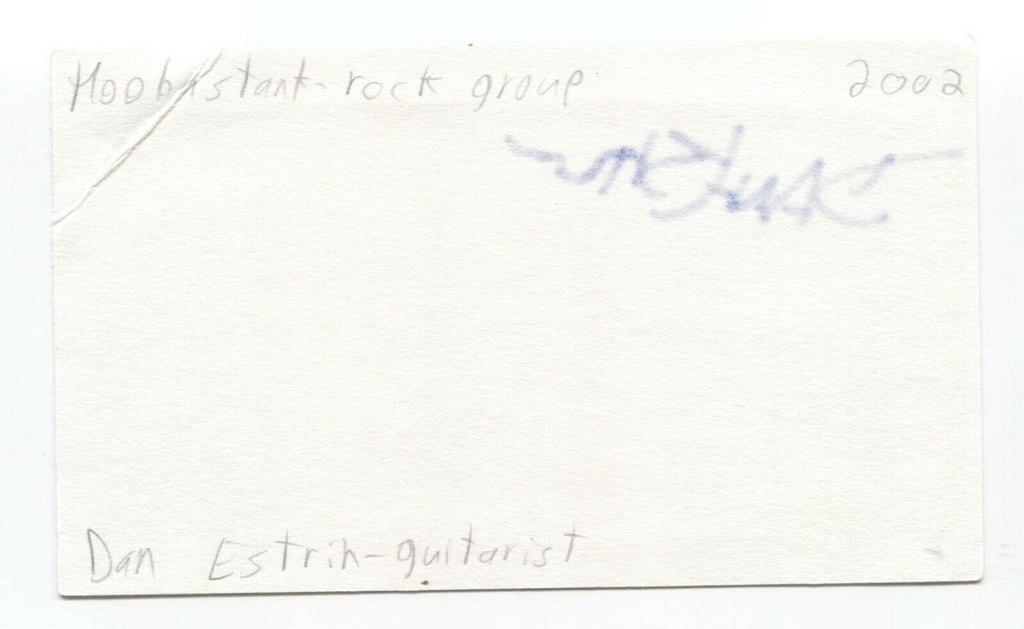 Hoobastant-rock group 2002
Dan Estrin-guitarist